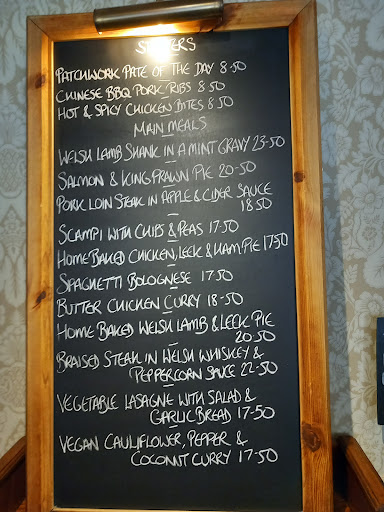 STARTERS
PATCHWORK PATE OF THE DAY 8-50
CHINESE BBQ PORK RIBS 8 50
HOT & SPICY CHICKEN BITES 8 50
MAIN MEALS
WELSH LAMB SHANK IN A MINT GRAVY 23-50
SALMON & KING PRAWN PIE 20-50
PORK LOIN STEAK IN APPLE & CIDER SAUCE
18 50
SCAMPI WITH CHIPS & PEAS 17-50
HOME BAKED CHICKEN, LEEK & HAM PIE 17-50
SPAGHETTI BOLOGNESE 17-50
BUTTER CHICKEN CURRY 18-50
HOME BAKED WELSH LAMB & LEEK PIE
20 50
BRAISED STEAK IN WELSH WHISKEY &
PEPPERCORN SAUCE 22-50
VEGETABLE LASAGNE WITH SALAD &
GARLIC BREAD 17-50
VEGAN CAULIFLOWER, PEPPER &
COCONUT CURRY 17-50